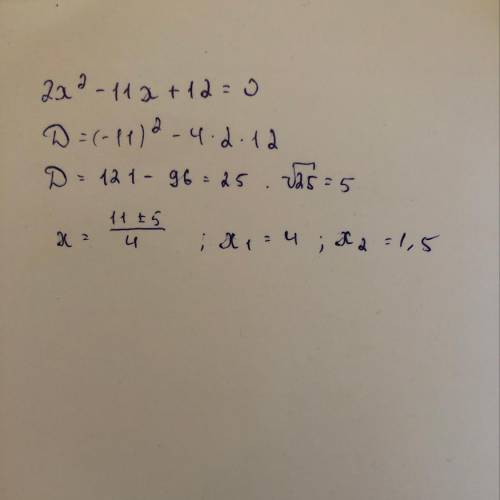 2x² - 11x + 12 = 0
D = (-11)² - 4 · 2 · 12
D = 121 - 96 = 25 . √25 = 5
x = (11 ± 5)/4 ; x₁ = 4 ; x₂ = 1,5